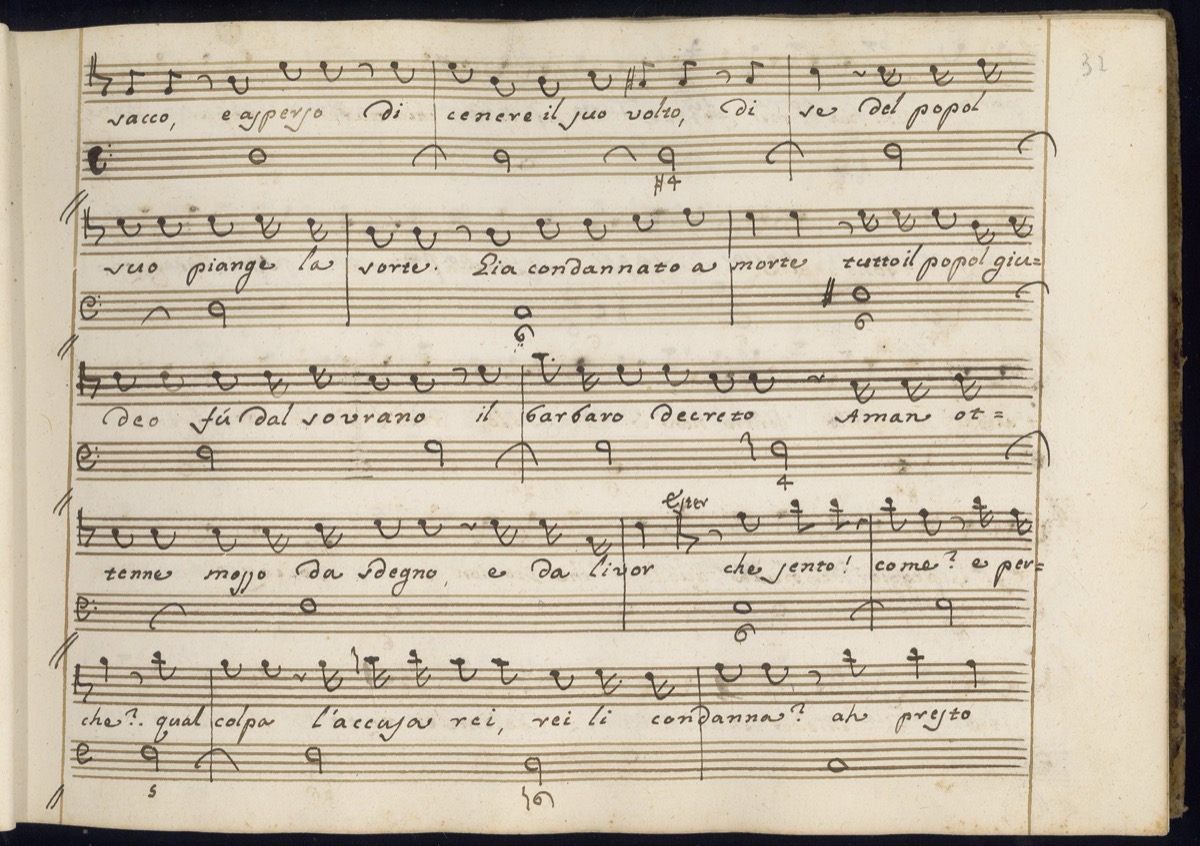 32
sacco, e asperso di cenere il suo volto, di se del popol
#4
suo piange la sorte. Gia condannato a morte tutto il popol giu=
6 6
deo fú dal sovrano il barbaro decreto Aman ot=
4
Ester
tenne mosso da sdegno, e da livor che sento! come? e per=
6
che? qual colpa l'accusa rei, rei li condanna? ah presto
5 6